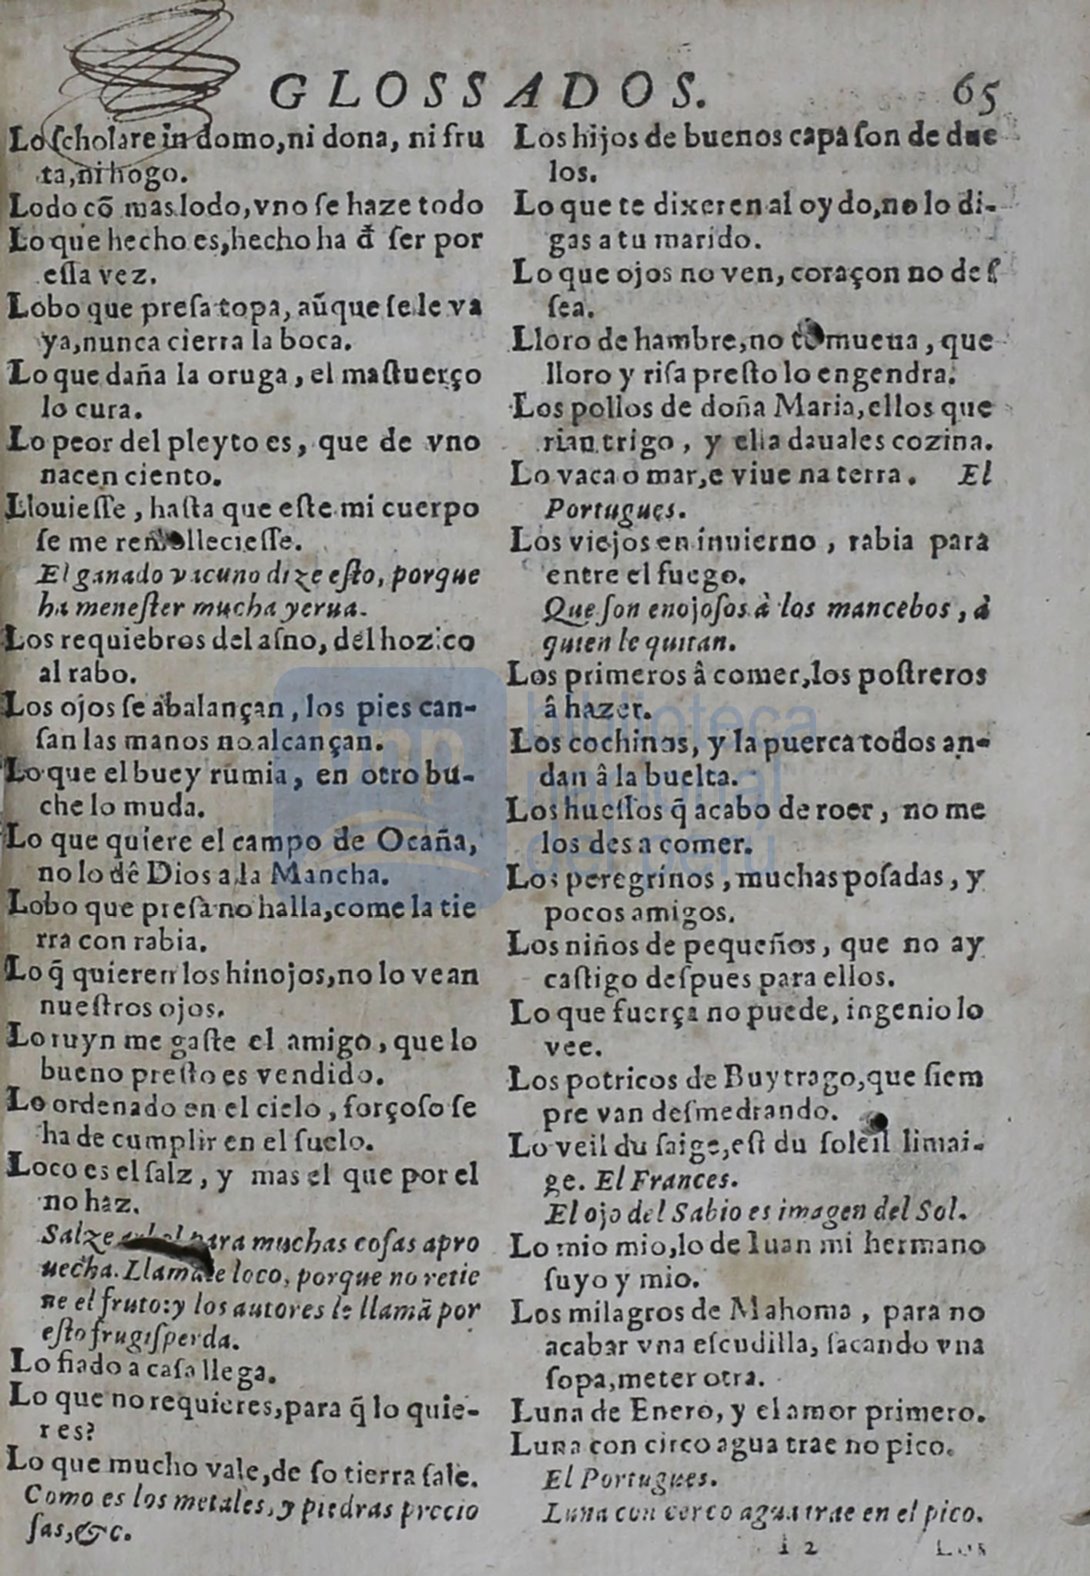 GLOSSADOS.
65
Lo ſcholare in domo, ni dona, ni fru
ta, ni hogo.
Lodo cõ mas lodo, vno ſe haze todo
Lo que hecho es, hecho ha đ ſer por
eſſa vez.
Lobo que preſa topa, aũque ſe le va
ya, nunca cierra la boca.
Lo que daña la oruga, el maſtuerço
lo cura.
Lo peor del pleyto es, que de vno
nacen ciento.
Llouieſſe, haſta que eſte mi cuerpo
ſe me remollecieſſe.
El ganado vacuno dize eſto, porque
ha meneſter mucha yerua.
Los requiebros del aſno, del hozico
al rabo.
Los ojos ſe abalançan, los pies can-
ſan las manos no alcançan.
Lo que el buey rumia, en otro bu-
che lo muda.
Lo que quiere el campo de Ocaña,
no lo dê Dios a la Mancha.
Lobo que preſa no halla, come la tie
rra con rabia.
Lo q̃ quieren los hinojos, no lo vean
nueſtros ojos.
Lo ruyn me gaſte el amigo, que lo
bueno preſto es vendido.
Lo ordenado en el cielo, forçoſo ſe
ha de cumplir en el ſuelo.
Loco es el ſalz, y mas el que por el
no haz.
Salze arbol para muchas coſas apro
uecha. Llamaſe loco, porque no retie
ne el fruto: y los autores le llamã por
eſto frugiſperda.
Lo fiado a caſa llega.
Lo que no requieres, para q̃ lo quie-
res?
Lo que mucho vale, de ſo tierra ſale.
Como es los metales, y piedras precio
ſas, &c.
Los hijos de buenos capa ſon de due
los.
Lo que te dixeren al oydo, no lo di-
gas a tu marido.
Lo que ojos no ven, coraçon no deſ
ſea.
Lloro de hambre, no te mueua, que
lloro y riſa preſto lo engendra.
Los pollos de doña Maria, ellos que
rian trigo, y ella daua les cozina.
Lo vaca o mar, e viue na terra. El
Portugues.
Los viejos en inuierno, rabia para
entre el fuego.
Que ſon enojoſos à los mancebos, à
quien le quitan.
Los primeros â comer, los poſtreros
â hazer.
Los cochinos, y la puerca todos an-
dan â la buelta.
Los hueſſos q̃ acabo de roer, no me
los des a comer.
Los peregrinos, muchas poſadas, y
pocos amigos.
Los niños de pequeños, que no ay
caſtigo deſpues para ellos.
Lo que fuerça no puede, ingenio lo
vee.
Los potricos de Buytrago, que ſiem
pre van deſmedrando.
Lo veil du ſaige, eſt du ſoleil limai-
ge. El Frances.
El ojo del Sabio es imagen del Sol.
Lo mio mio, lo de Iuan mi hermano
ſuyo y mio.
Los milagros de Mahoma, para no
acabar vna eſcudilla, ſacando vna
ſopa, meter otra.
Luna de Enero, y el amor primero.
Luna con circo agua trae no pico.
El Portugues.
Luna con cerco agua trae en el pico.
I 2
Los
biblioteca
nacional
del perú